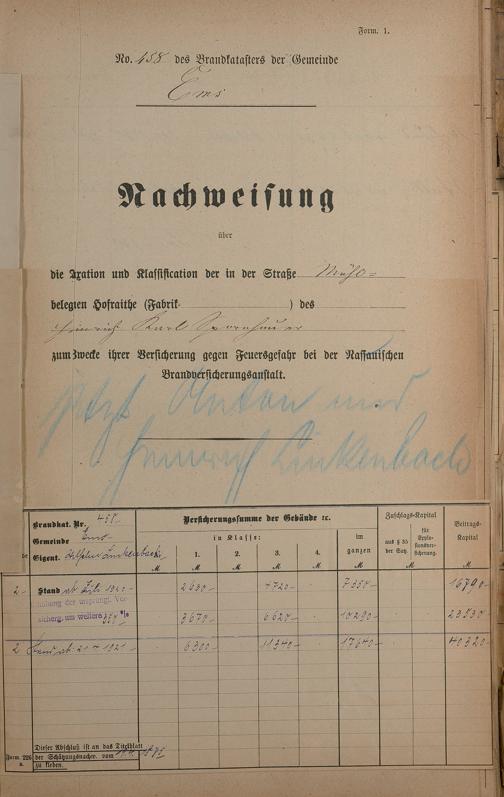 Form. 1.
No. 458 des Brandkatasters der Gemeinde
Ems
Nachweisung
über
die Taxation und Klassification der in der Straße Mühl=
belegten Hofraithe (Fabrik ) des
Heinrich Karl
zum Zwecke ihrer Versicherung gegen Feuersgefahr bei der Nassauischen
Brandversicherungsanstalt.
jetzt Anton und
Heinrich Linkenbach
Brandkat. Nr. 458
Gemeinde Ems
Eigent. Linkenbach
Versicherungssumme der Gebäude ꝛc.
in Klasse:
1. 2. 3. 4. im ganzen
Zuschlags-Kapital
aus § 35 der Satz. für Explosionsversicherung.
Beitrags-Kapital
M M M M M M M M
2 Stand ab 2630 4720 7350 16790
höhung der ursprüngl. Ver
sicherg. um weitere 3670 6620 10290 23530
2 Stand ab 1921 6300 11340 17640 40320
Form. 226 a.
Dieser Abschluß ist an das Titelblatt
der Schätzungsnachw. vom
zu kleben.